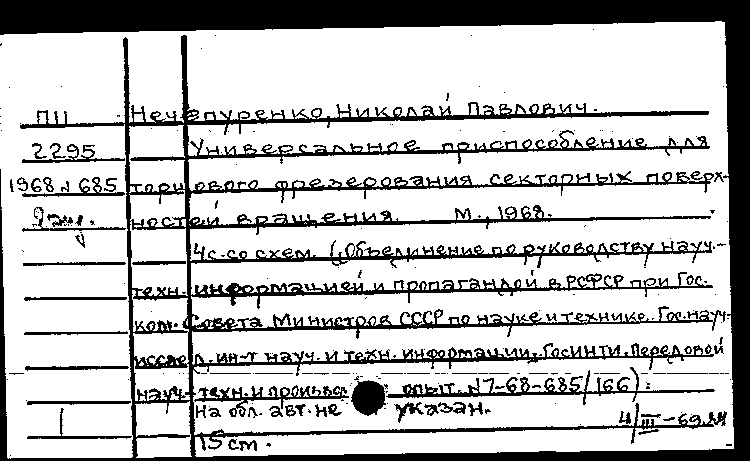 ПII Нечепуренко, Николай Павлович.
2295 Универсальное приспособление для
1968 N 685 торцового фрезерования секторных поверх-
ностей вращения. М., 1968.
4с. со схем. (Объединение по руководству науч.-
техн. информацией и пропагандой в РСФСР при Гос.
ком. Совета Министров СССР по науке и технике. Гос. науч.-
исслед. ин-т науч. и техн. информации. ГОСИНТИ. Передовой
науч.-техн. и произв. опыт. N7-68-685/166):
На обл. авт. не указан.
4/III-69.
15 см.